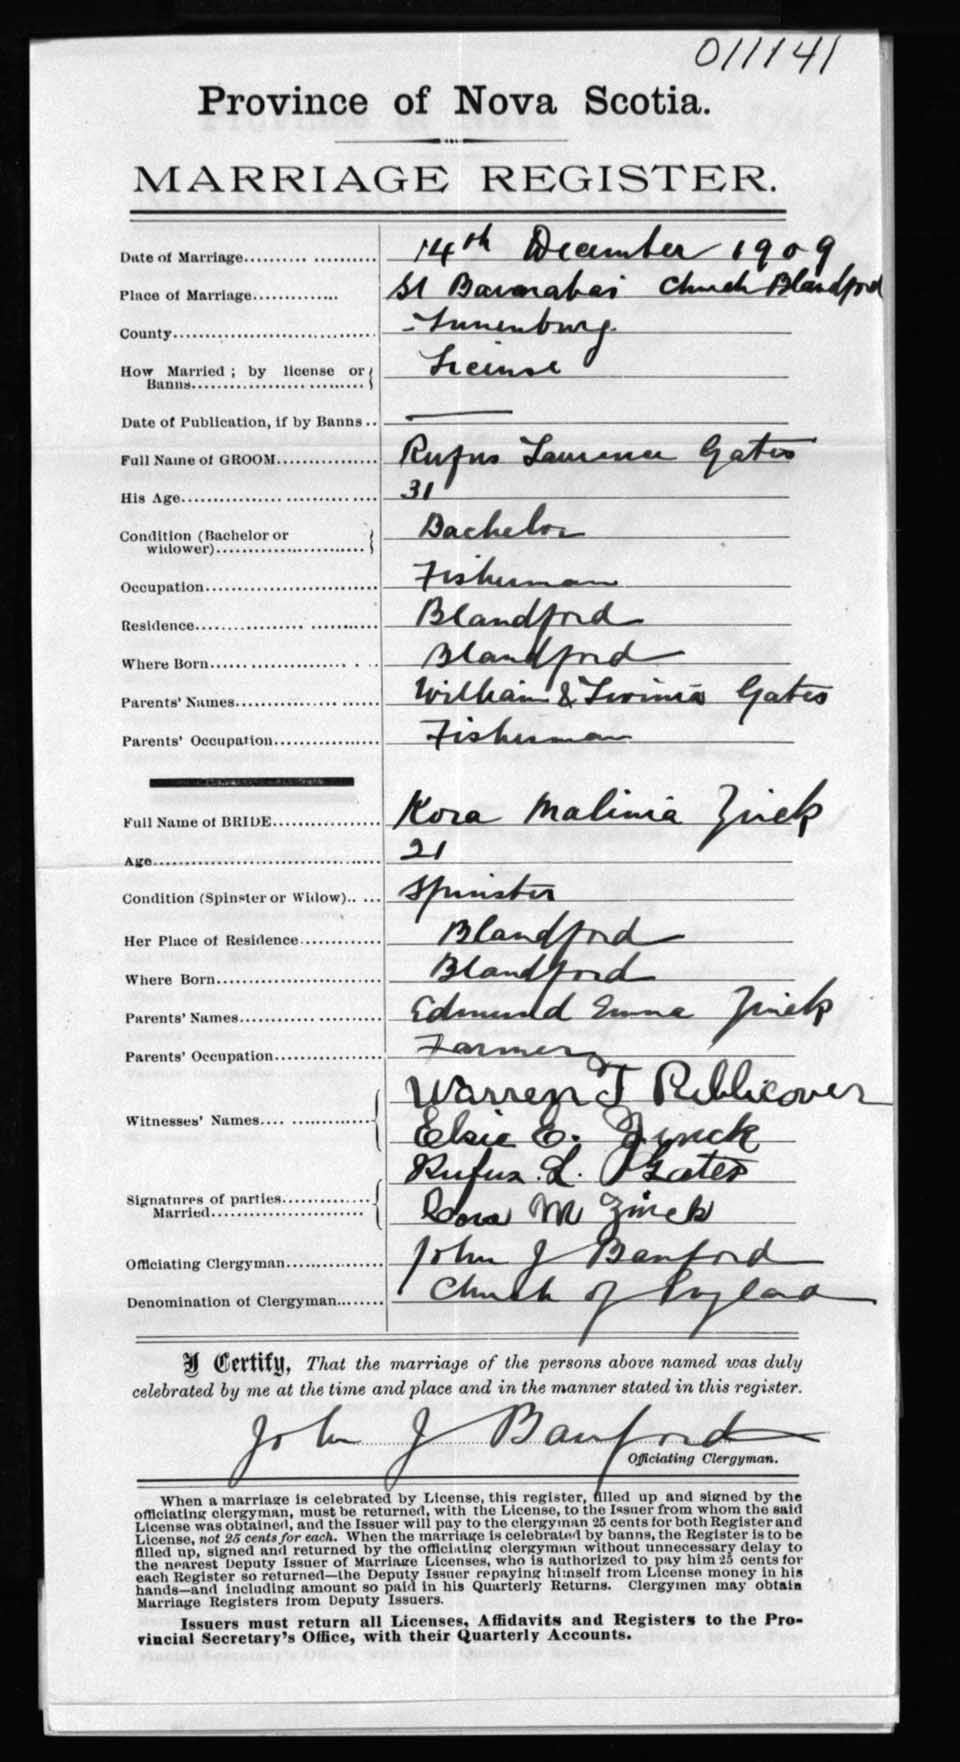 011141
Province of Nova Scotia.
MARRIAGE REGISTER.
Date of Marriage 14th December 1909
Place of Marriage St Barnabas Church Blandford
County Lunenburg
How Married ; by license or Banns License
Date of Publication, if by Banns
Full Name of GROOM Rufus Laurence Gates
His Age 31
Condition (Bachelor or widower) Bachelor
Occupation Fisherman
Residence Blandford
Where Born Blandford
Parents' Names William & Gates
Parents' Occupation Fisherman
Full Name of BRIDE Kora Malinia Zinck
Age 21
Condition (Spinster or Widow) Spinster
Her Place of Residence Blandford
Where Born Blandford
Parents' Names Edmund Emma Zinck
Parents' Occupation Farmer
Witnesses' Names Warren T Publicover
Elsie E. Zinck
Signatures of parties Married Rufus. L. Gates
Cora M Zinck
Officiating Clergyman John J Banford
Denomination of Clergyman Church of England
I Certify, That the marriage of the persons above named was duly
celebrated by me at the time and place and in the manner stated in this register.
John J Banford
Officiating Clergyman.
When a marriage is celebrated by License, this register, filled up and signed by the
officiating clergyman, must be returned, with the License, to the Issuer from whom the said
License was obtained, and the Issuer will pay to the clergyman 25 cents for both Register and
License, not 25 cents for each. When the marriage is celebrated by banns, the Register is to be
filled up, signed and returned by the officiating clergyman without unnecessary delay to
the nearest Deputy Issuer of Marriage Licenses, who is authorized to pay him 25 cents for
each Register so returned—the Deputy Issuer repaying himself from License money in his
hands—and including amount so paid in his Quarterly Returns. Clergymen may obtain
Marriage Registers from Deputy Issuers.
Issuers must return all Licenses, Affidavits and Registers to the Pro-
vincial Secretary's Office, with their Quarterly Accounts.